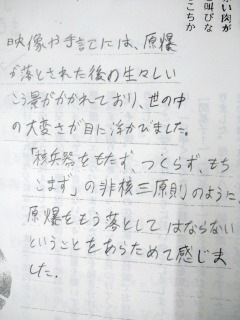 い肉が
叫びな
こちか
映像や手記には、原爆
が落とされた後の生々しい
こう景がかかれており、世の中
の大変さが目に浮かびました。
「核兵器をもたず、つくらず、もち
こまず」の非核三原則のように、
原爆をもう落としてはならない
ということをあらためて感じま
した。